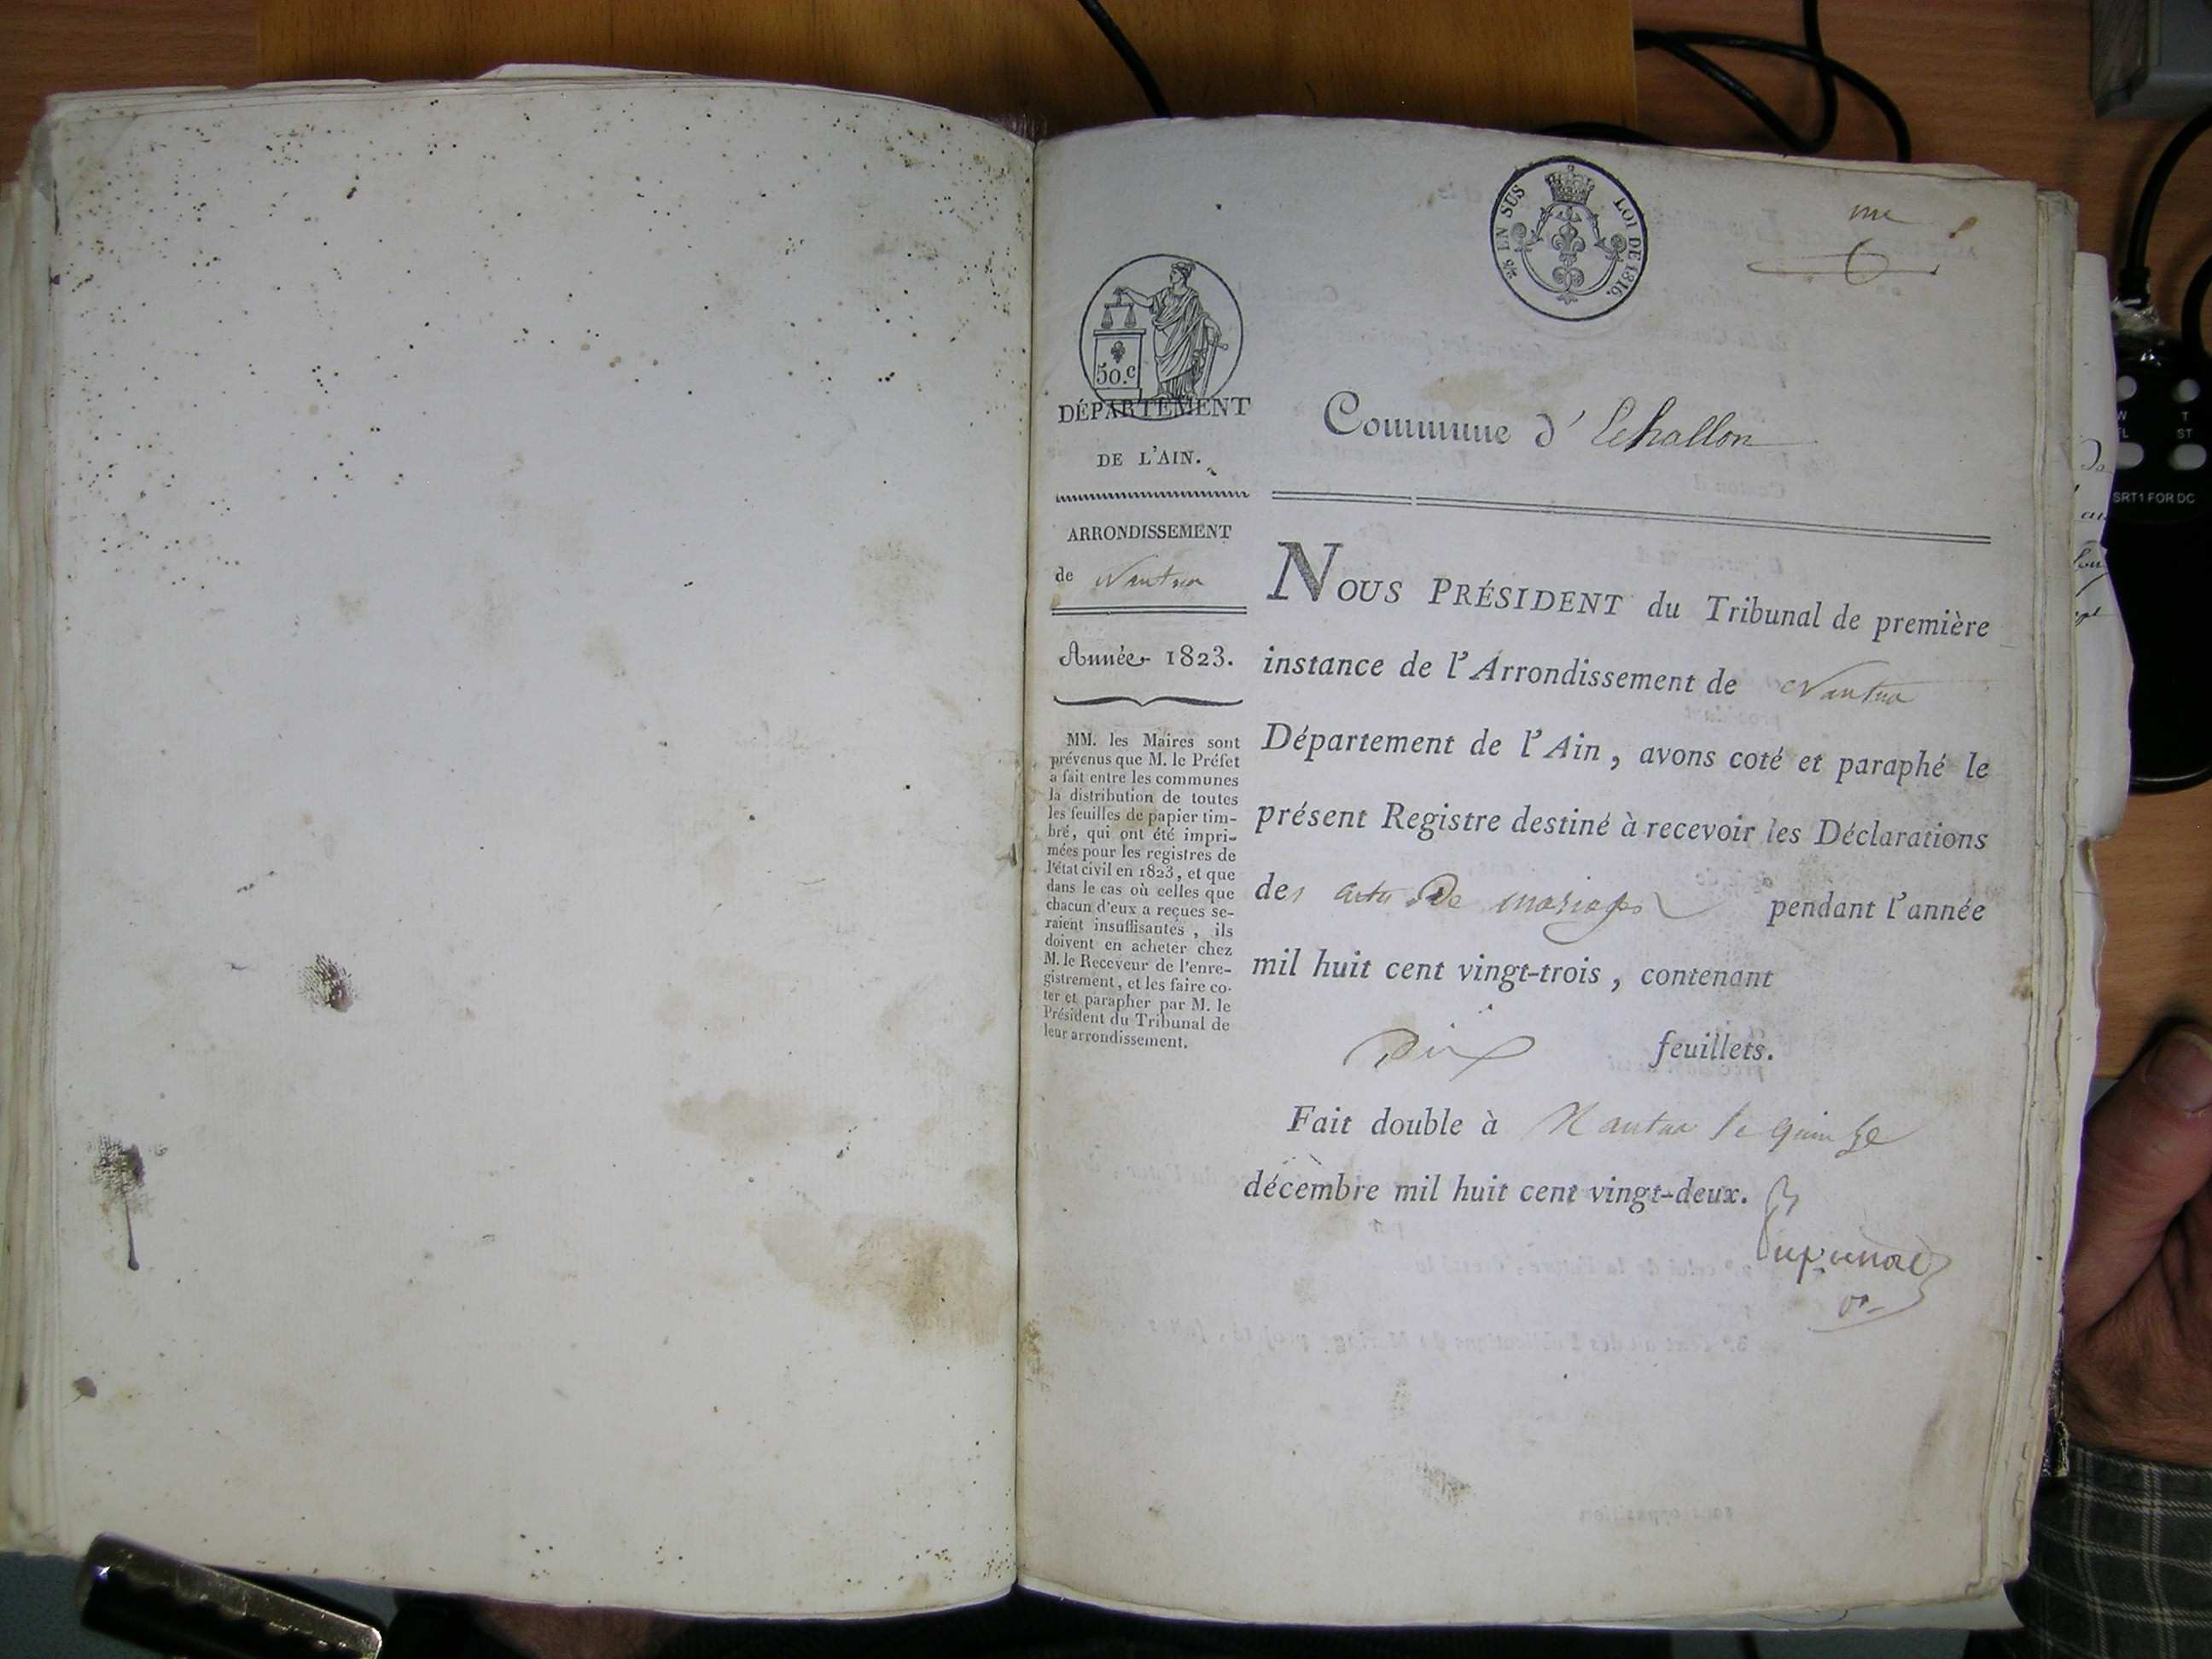 2/5 EN SUS LOI DE 1816.
50.c
DÉPARTEMENT
DE L'AIN.
ARRONDISSEMENT
de Nantua
Année 1823.
MM. les Maires sont
prévenus que M. le Préfet
a fait entre les communes
la distribution de toutes
les feuilles de papier tim-
bré, qui ont été impri-
mées pour les registres de
l'état civil en 1823, et que
dans le cas où celles que
chacun d'eux a reçues se-
raient insuffisantes, ils
doivent en acheter chez
M. le Receveur de l'enre-
gistrement, et les faire co-
ter et parapher par M. le
Président du Tribunal de
leur arrondissement.
Commune d' Echallon
NOUS PRÉSIDENT du Tribunal de première
instance de l'Arrondissement de Nantua
Département de l'Ain, avons coté et paraphé le
présent Registre destiné à recevoir les Déclarations
des actes De mariages pendant l'année
mil huit cent vingt-trois, contenant
Dix feuillets.
Fait double à Nantua le quinze
décembre mil huit cent vingt-deux.
SRT1 FOR DC